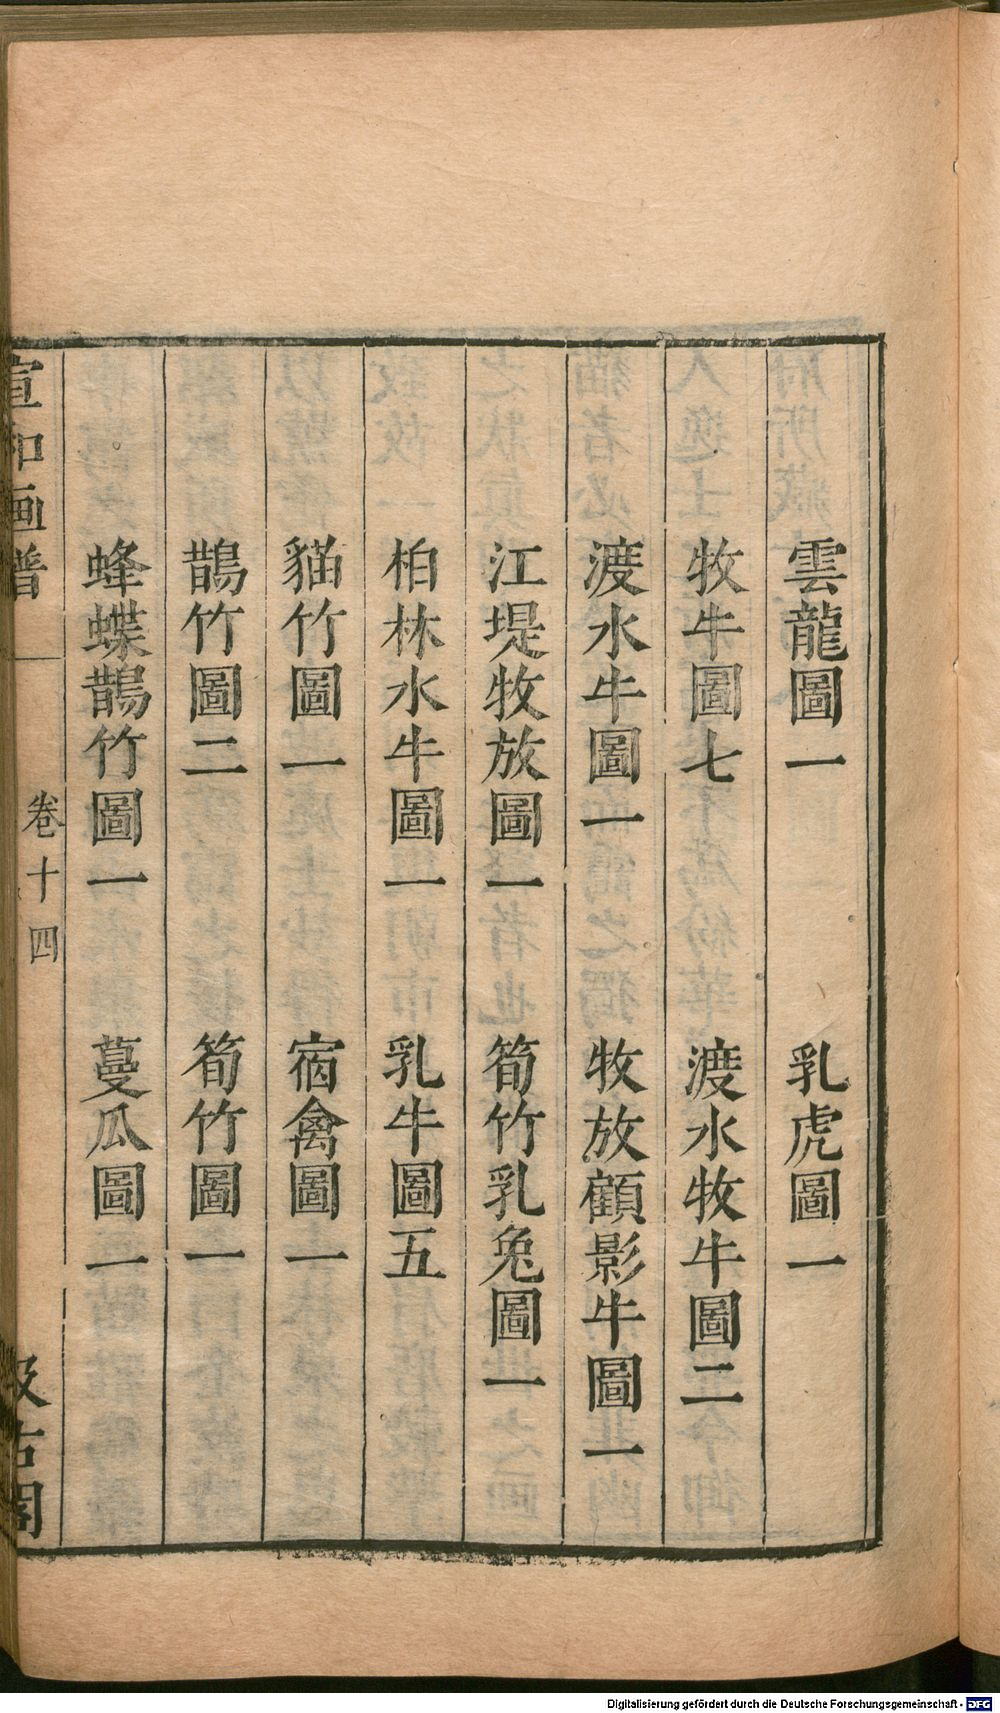 雲龍圖一　乳虎圖一
牧牛圖七　渡水牧牛圖二
渡水牛圖一　牧放顧影牛圖一
江堤牧放圖一　筍竹乳兔圖一
柏林水牛圖一　乳牛圖五
貓竹圖一　宿禽圖一
鵲竹圖二　筍竹圖一
蜂蝶鵲竹圖一　蔓瓜圖一
宣和画譜　卷十四　汲古閣
Digitalisierung gefördert durch die Deutsche Forschungsgemeinschaft - DFG